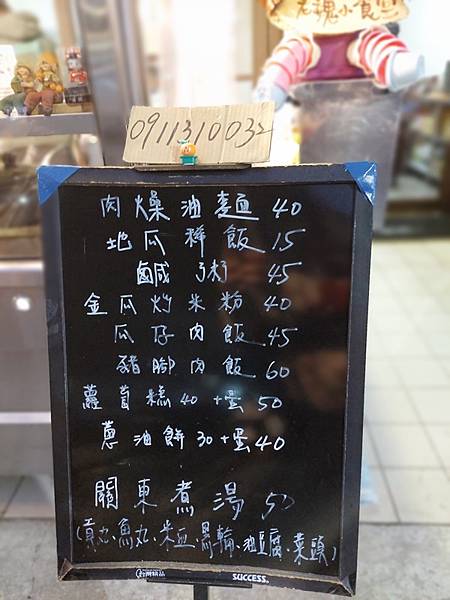 老魂小食堂
0911310032
肉燥油麵 40
地瓜稀飯 15
鹹粥 45
金瓜炒米粉 40
瓜仔肉飯 45
豬腳肉飯 60
蘿蔔糕40+蛋50
蔥油餅30+蛋40
關東煮湯 50
(貢丸、魚丸、米血、黑輪、油豆腐、菜頭)
SUCCESS